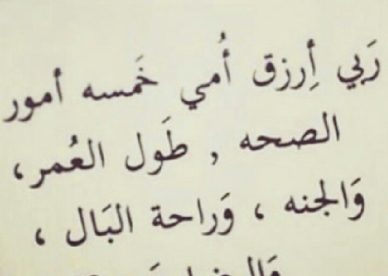 رَبي أرزق أُمي خَمسه أمور
الصحه , طَول العُمر،
وَالجنه ، وَراحة البَال ،